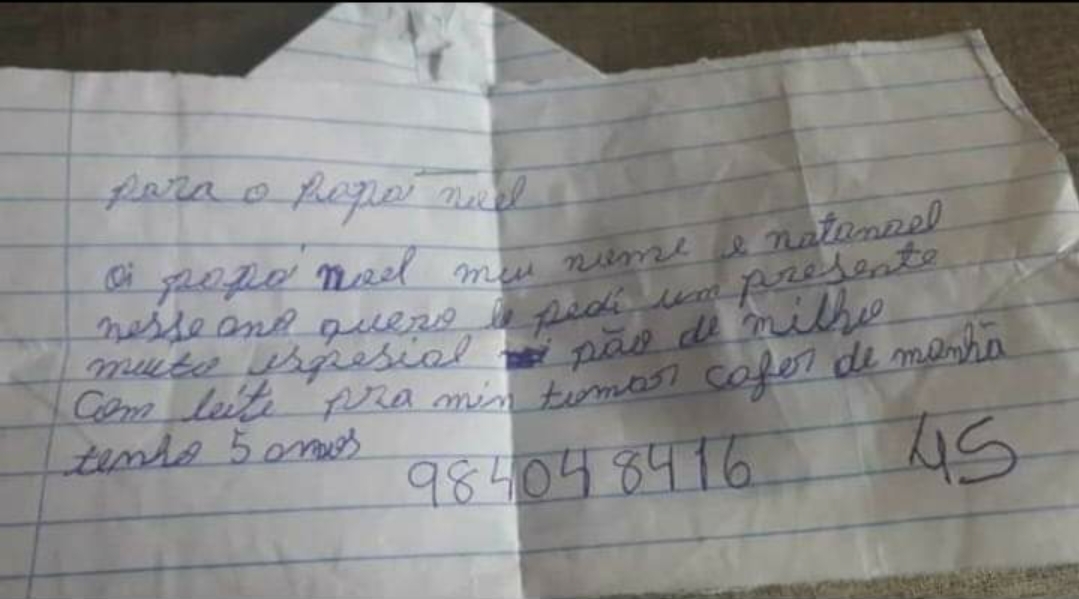 para o Papai noel
Oi papai noel meu nome e natanael
nesse ano quero le pedi um presente
muito espesial pão de milho
Com leite pra min tomar cafer de manhã
tenho 5 anos
984048416 45